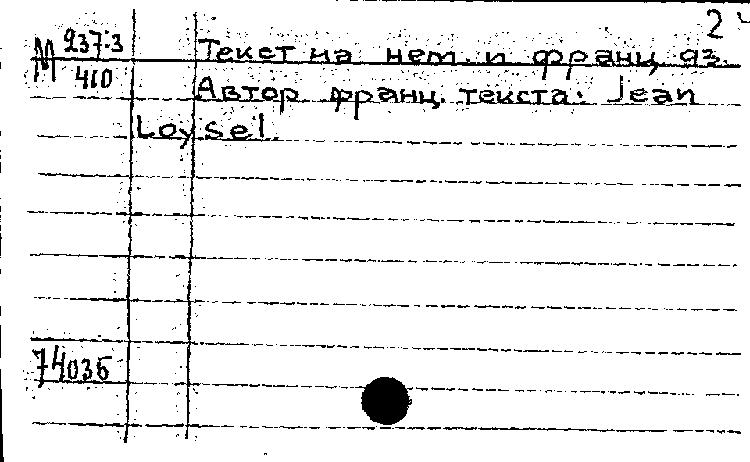 2
М 237-3
410
Текст на нем. и франц яз.
Автор франц. текста: Jean
Loysel.
74035